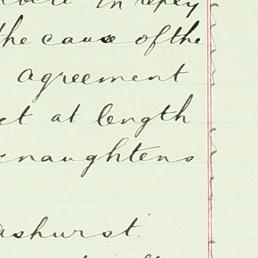 in reply
the cause of the
agreement
ct at length
cnaughtens
ashurst